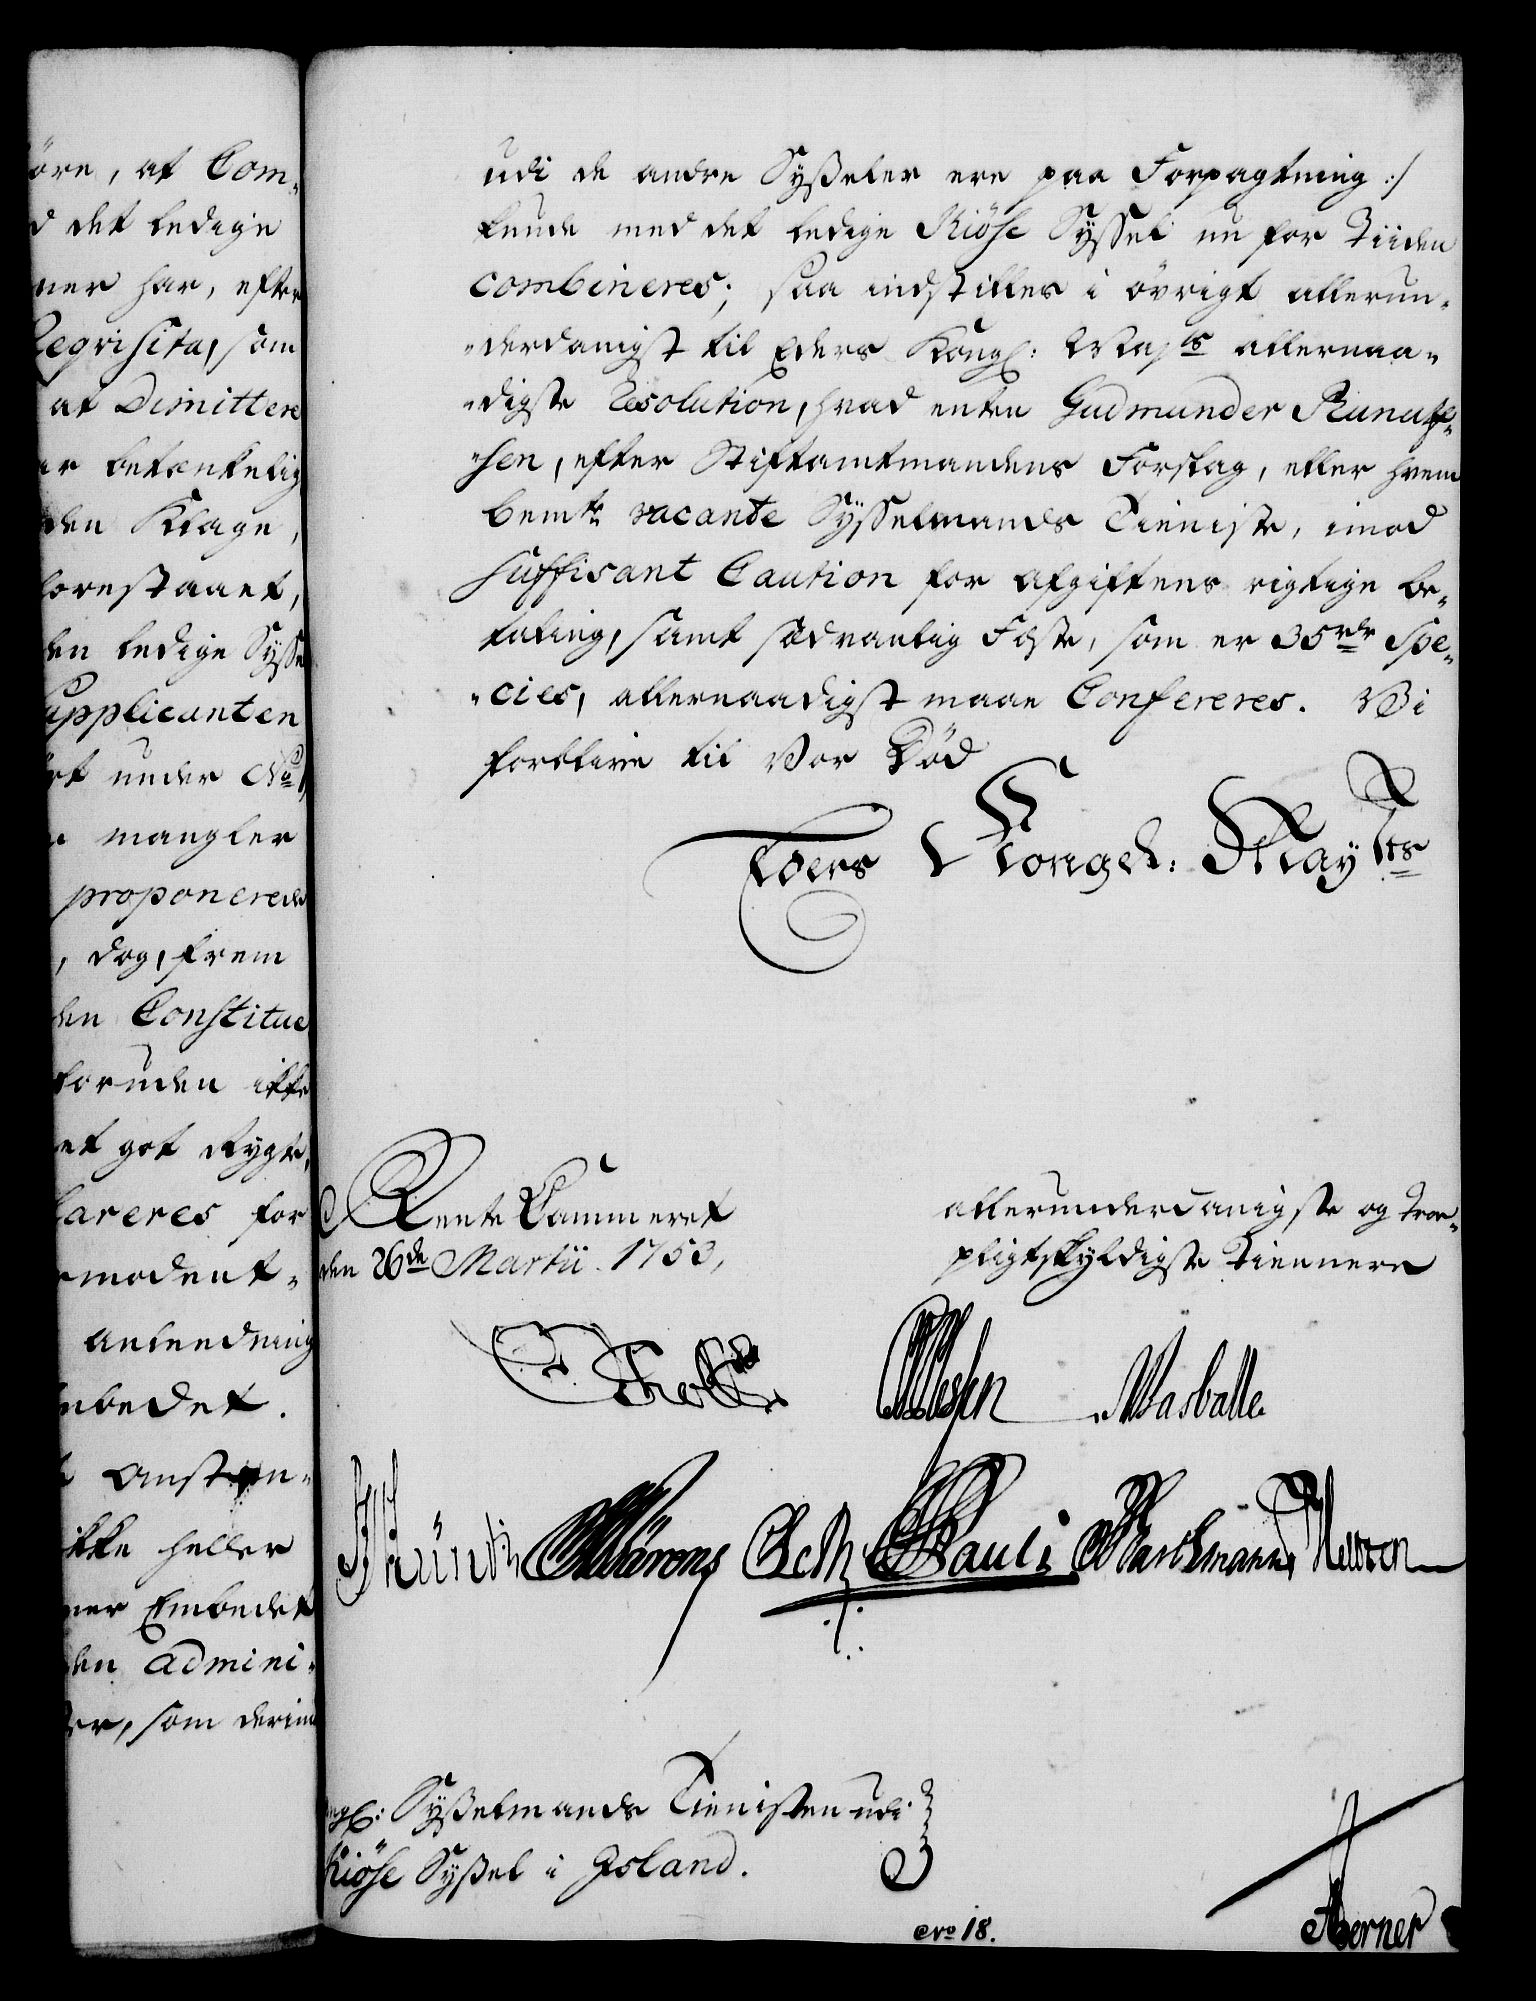 öre, at Com-
d det ledige
ner har, efter
Reqvisita, som
at Dimittere
ar betænkelig
den Klage,
forestaaet,
den ledige Sysse
Supplicanten
under No 1,
mangler
proponerede
, dog, frem
den Constitue
foruden ikke
et got Rygte,
lareres for
modent-
anleedning
mbedet.
ikke heller
ner Embedet
den admini-
er, som derim
udi de andre Sysseler ere paa Forpagtning :/
kunde med det ledige Kiöse Syssel nu for Tiiden
combineres; saa indstilles i övrigt allerun-
-derdanigst til Eders Kongl: Maj ts allernaa-
-digste Resolution, hvad enten Gudmunder Runulf-
-sen, efter Stiftamtmandens Forslag, eller hvem
bemte vacante Sysselmands Tieniste, imod
suffisant Caution for Afgiftens rigtige be-
taling, samt sædvanlig Fæste, som er 35 rdr Spe-
-cies, allernaadigst maae Confereres. Vi
forblive til Vor Död
Eders Kongel: May ts
Rente Cammeret
den 26de Martii 1753,
allerunderdanigste og troe-
pligtskyldigste Tiennere
Holst
Masballe
Pauli
Barthmann
ngl: Sysselmands Tienisten udi
Kiöse Syssel i Island.
No 18.
Berner